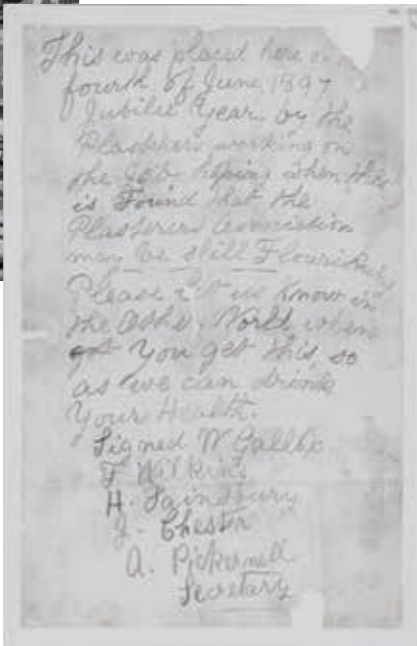 This was placed here on
fourth of June 1897
Jubilee Year, by the
Plasterers working on
the Job hoping when this
is Found that the
Plasterers Association
may be still Flourishing
Please let us Know in
the Other World when
you get this, so
as we can drink
Your Health.
Signed W Gallop
F Wilkins
H. Sainsbury
J. Chester
A. Pickernell
Secretary